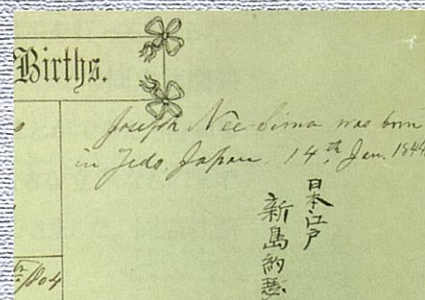 Births.
Joseph Nee-Sima was born
in Jedo, Japan. 14th Jan. 1844
日本江戸
新島約瑟